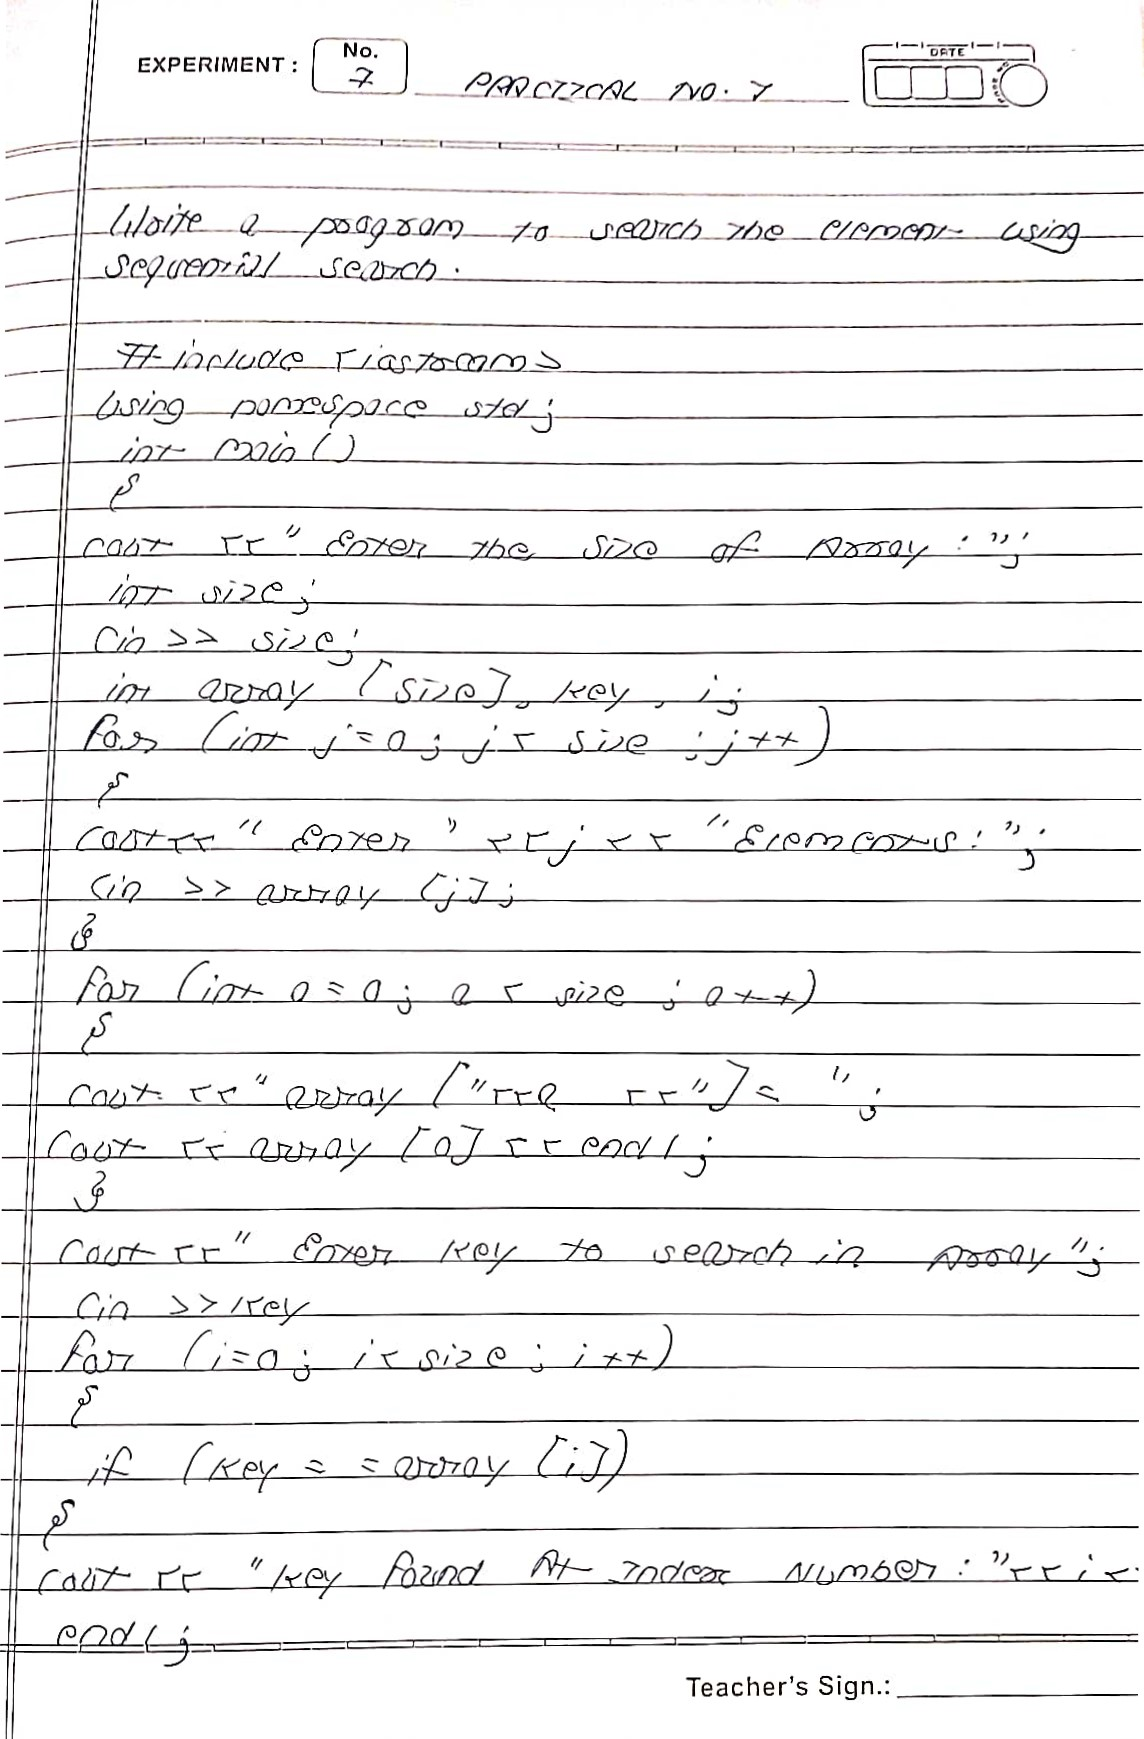 EXPERIMENT :
No.
7
PRACTICAL NO. 7
DATE
Write a program to search the element using
sequential search.
# include <iostream>
using namespace std;
int main ()
{
cout << " Enter the Size of Array : ";
int size;
Cin >> size;
int array [size], key, i;
for (int j = 0; j < size ; j++)
{
cout << " Enter " << j << " Elements : ";
Cin >> array [j];
}
for (int a = 0; a < size ; a++)
{
cout << " array [" << a << "] = ";
Cout << array [a] << endl;
}
Cout << " Enter key to search in Array ";
Cin >> key
for (i=0; i < size ; i++)
{
if (key = = array [i])
{
cout << " key found At Index Number : " << i <
endl;
Teacher's Sign.: